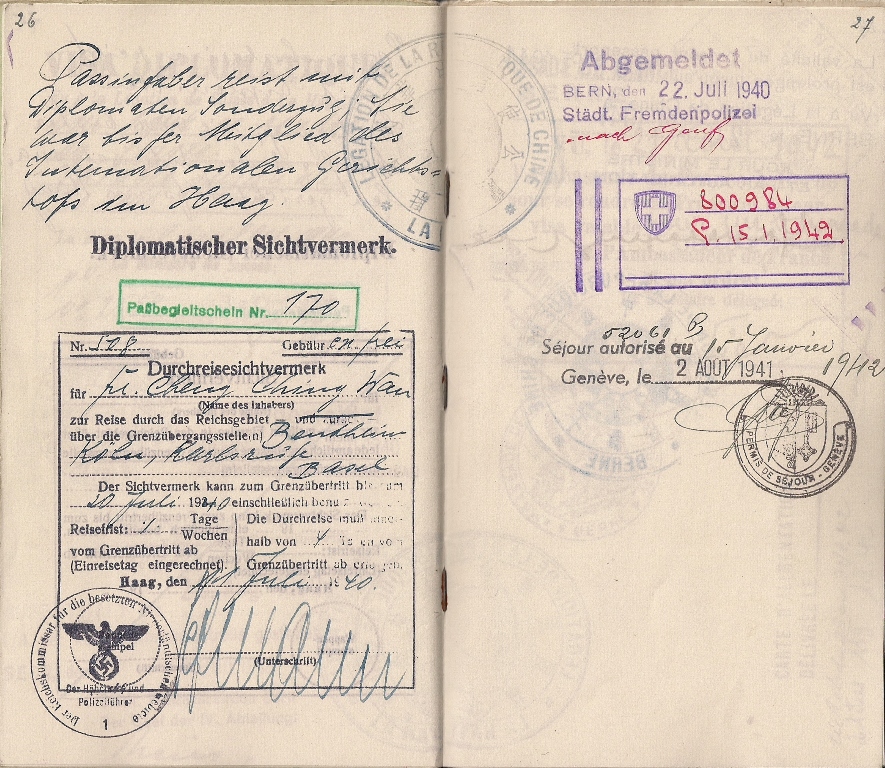 26
Passinhaber reist mit
Diplomaten Sonderzug. Sie
war bisher Mitglied des
Internationalen Gerichts-
hofs den Haag.
LEGATION DE LA RÉPUBLIQUE DE CHINE
LA
Diplomatischer Sichtvermerk.
Paßbegleitschein Nr. 170
Nr. 508 Gebühr: frei
Durchreisesichtvermerk
für Frl. Cheng Ching Wan
(Name des Inhabers)
zur Reise durch das Reichsgebiet
über die Grenzübergangsstelle(n) Bentheim
Köln, Karlsruhe
Basel
Der Sichtvermerk kann zum Grenzübertritt bis zum
20 Juli 1940 einschließlich
Reisefrist: Tage
Wochen
vom Grenzübertritt ab
(Einreisetag eingerechnet).
Die Durchreise muß inner-
halb von 4 Tagen vom
Grenzübertritt ab erfolgen.
Haag, den 11 Juli 1940.
(Unterschrift)
Der Reichskommissar für die besetzten Niederländischen Gebiete
Der Höhere SS und
Polizeiführer
1
27
Abgemeldet
BERN, den 22. Juli 1940
Städt. Fremdenpolizei
nach Genf
800984
P. 15.1.1942
52061 B
Séjour autorisé au 15 Janvier
1942
Genève, le 2 AOUT 1941
PERMIS DE SÉJOUR - GENÈVE
BERNE